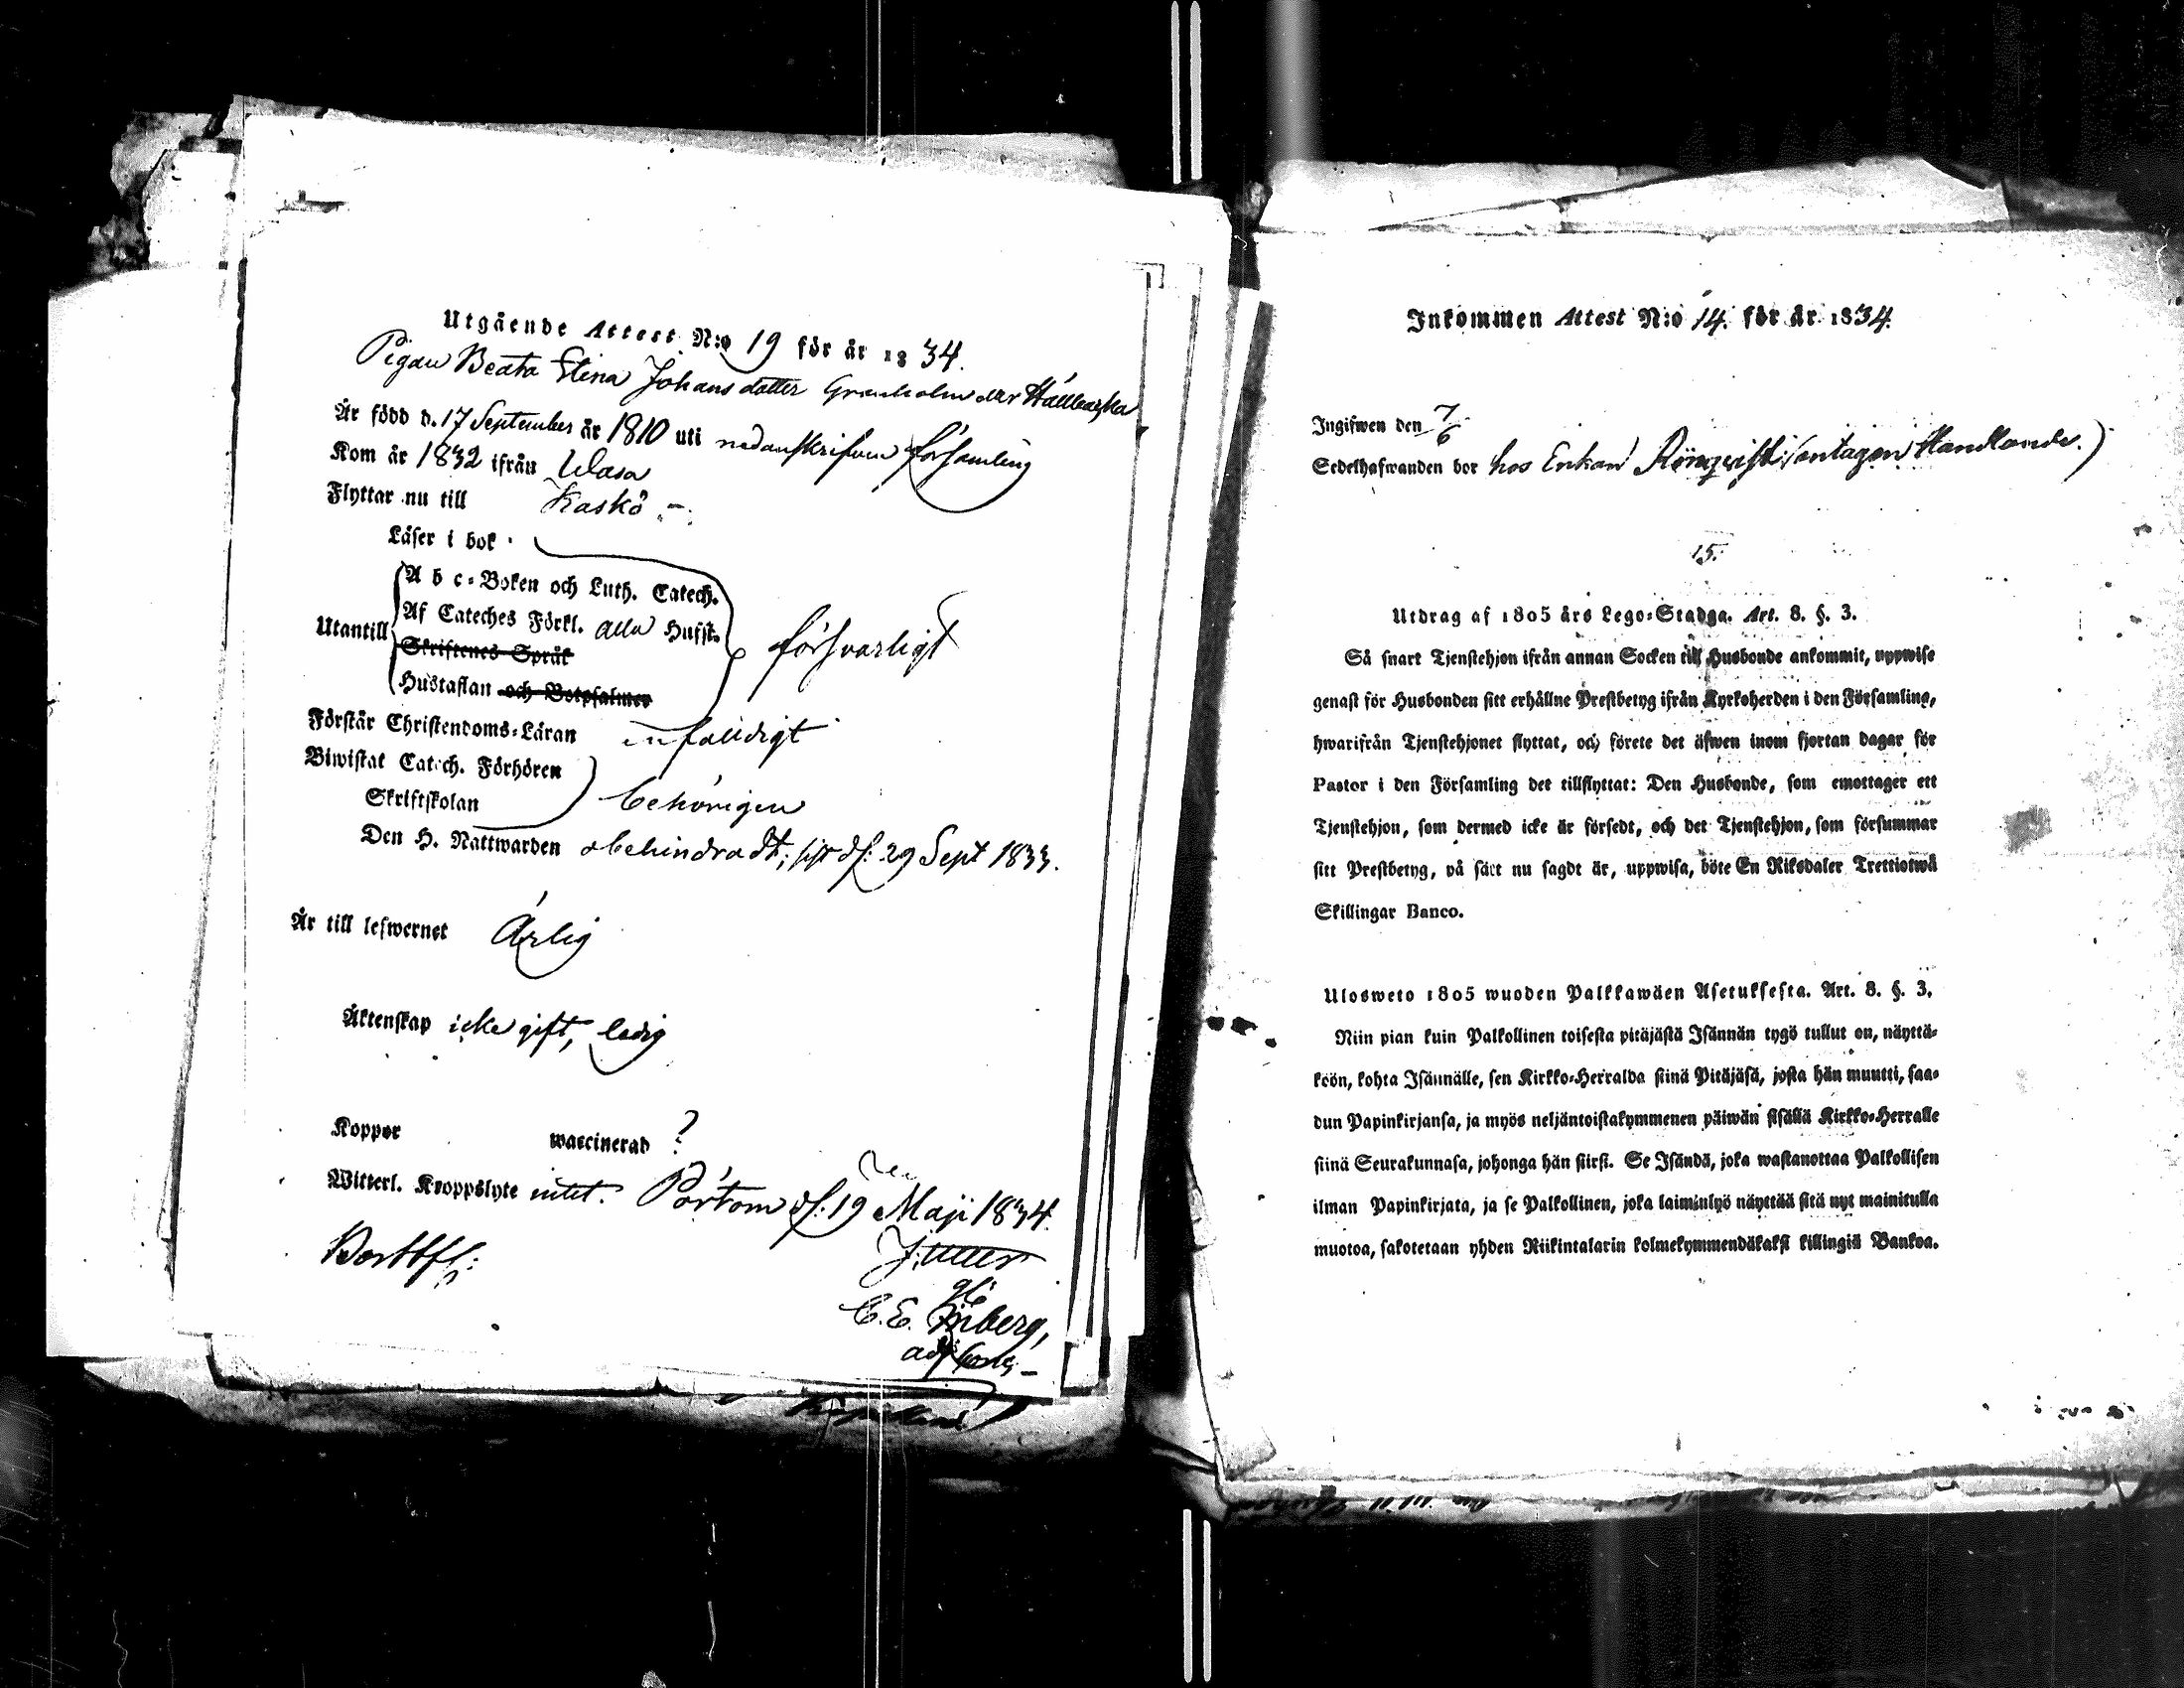 Utgående Attest N:o 19 för år 1834.
Pigan Beata Stina Johansdotter Granholm
Är född d. 17 September år 1810 uti nedanskrifven församling
Kom år 1832 ifrån Wasa
Flyttar nu till Kaskö
Läser i bok
A b c-Boken och Luth. Catech.
Utantill Af Cateches Förkl. alla Hufst. försvarligt
Skriftenes Språk
Hustaflan och Botpsalmer
Förstår Christendoms-Läran enfalldigt
Biwistat Catech. Förhören
Skriftskolan behörigen
Den H. Nattwarden obehindradt; sist d. 29 Sept 1833.
Är till lefwernet Ärlig
Äktenskap icke gift, ledig
Koppor waccinerad ?
Witterl. Kroppslyte intet. Pörtom d. 19 Maji 1834.
C. E.
adj
Inkommen Attest N:o 14. för år 1834.
Ingifwen den 7/6
Sedelhafwanden bor hos Enkan Rönqvist (antagen Handlande.)
15.
Utdrag af 1805 års Lego-Stadga. Art. 8. §. 3.
Så snart Tjenstehjon ifrån annan Socken till Husbonde ankommit, uppwise
genast för Husbonden sitt erhållne Prestbetyg ifrån Kyrkoherden i den Församling,
hwarifrån Tjenstehjonet flyttat, och förete det äfwen inom fjortan dagar för
Pastor i den Församling det tillflyttat: Den Husbonde, som emottager ett
Tjenstehjon, som dermed icke är försedt, och det Tjenstehjon, som försummar
sitt Prestbetyg, på sätt nu sagdt är, uppwisa, böte En Riksdaler Trettiotwå
Skillingar Banco.
Ulosweto 1805 wuoden Palkkawäen Asetuksesta. Art. 8. §. 3.
Niin pian kuin Palkollinen toisesta pitäjästä Isännän tygö tullut on, näyttä-
köön, kohta Isännälle, sen Kirkko-Herralda siinä Pitäjäsä, josta hän muutti, saa-
dun Papinkirjansa, ja myös neljäntoistakymmenen päiwän sisällä Kirkko-Herralle
siinä Seurakunnasa, johonga hän siirsi. Se Isändä, joka wastanottaa Palkollisen
ilman Papinkirjata, ja se Palkollinen, joka laiminlyö näyttää sitä nyt mainitulla
muotoa, sakotetaan yhden Riikintalarin kolmekymmendäkaksi killingiä Bankoa.